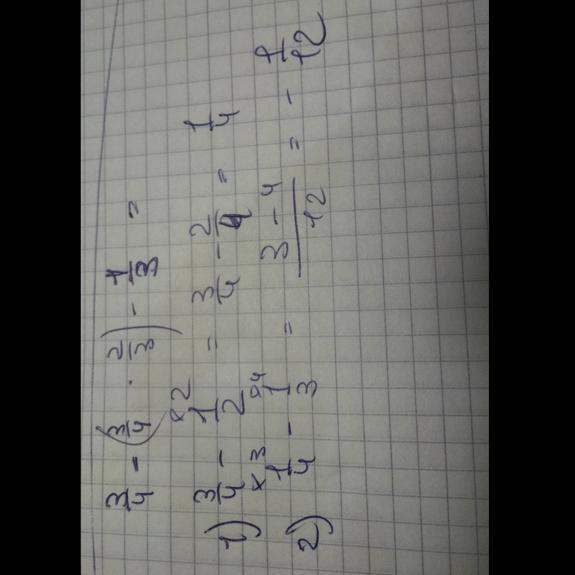 3/4 - (3/4 · 2/3) - 1/3 =
1) 3/4 - 1/2 ×2 = 3/4 - 2/4 = 1/4
2) 1/4 ×3 - 1/3 ×4 = (3-4)/12 = - 1/12